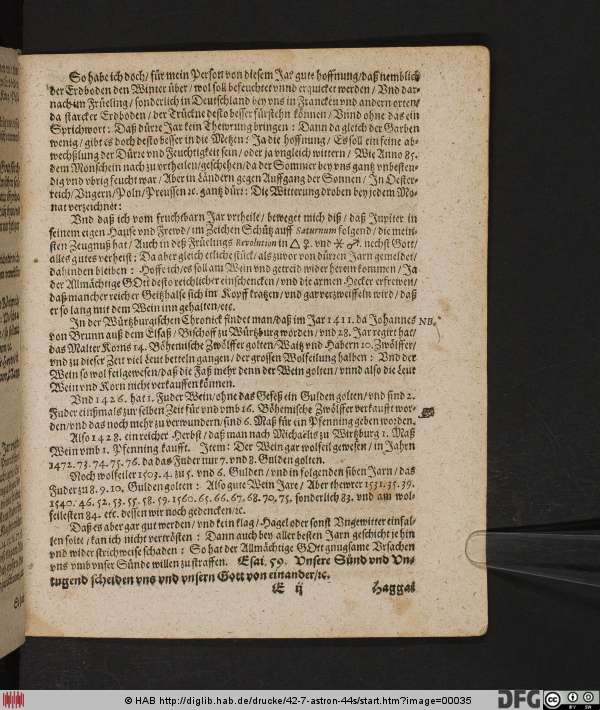 So habe ich doch/ für mein Person von diesem Jar gute hoffnung/ daß nemblich
der Erdboden den Winter über/ wol soll befeuchtet vnnd erquicket werden/ Vnd dar-
nach im Früeling/ sonderlich in Deutschland bey vns in Francken vnd andern orten/
da starcker Erdboden/ der Trückne desto besser fürstehn können/ Vnnd ohne das ein
Sprichwort: Daß dürre Jar kein Thewrung bringen: Dann da gleich der Garben
wenig/ gibt es doch desto besser in die Metzen: Ja die hoffnung/ Es soll ein feine ab-
wechßlung der Dürre vnd Feuchtigkeit sein/ oder ja vngleich wittern/ Wie Anno 85.
dem Monschein nach zu vrtheilen/ geschehen/ da der Sommer bey vns gantz vnbesten-
dig vnd vbrig feucht war/ Aber in Ländern gegen Auffgang der Sonnen/ In Oester-
reich/ Vngern/ Poln/ Preussen ꝛc. gantz dürr: Die Witterung droben bey jedem Mo-
nat verzeichnet:
Vnd daß ich vom fruchtbarn Jar vrtheile/ beweget mich diß/ daß Jupiter in
seinem eigen Hause vnd Frewd/ im Zeichen Schütz auff Saturnum folgend/ die mein-
sten Zeugnuß hat/ Auch in deß Früelings Revolution in △ ♀. vnd ⚹ ♂. nechst Gott/
alles gutes verheist: Da aber gleich etliche stück/ als zuvor von dürren Jarn gemeldet/
dahinden blieben: Hoffe ich/ es soll am Wein vnd getreid wider herein kommen/ Ja
der Allmächtige GOtt desto reichlicher einschencken/ vnd die armen Hecker erfrewen/
daß mancher reicher Geitzhalß sich im Kopff kratzen/ vnd gar verzweiffeln wird/ daß
er so lang mit dem Wein inn gehalten/ ꝛc.
In der Würtzburgischen Chronick findet man/ daß im Jar 1411. da Johannes NB.
von Brunn auß dem Elsaß/ Bischoff zu Würtzburg worden/ vnd 28. Jar regirt hat/
das Malter Korns 14. Böhemische Zwölffer golten/ Waitz vnd Habern 10. Zwölffer/
vnd zu dieser Zeit viel Leut betteln gangen/ der grossen Wolfeilung halben: Vnd der
Wein so wol feil gewesen/ daß die Faß mehr denn der Wein golten/ vnnd also die Leut
Wein vnd Korn nicht verkauffen können.
Vnd 1426. hat 1. Fuder Wein/ ohne das Gefeß ein Gulden golten/ vnd sind 2.
Fuder einßmals zur selben Zeit für vnd vmb 16. Böhemische Zwölffer verkaufft wor-
den/ vnd das noch mehr zu verwundern/ sind 6. Maß für ein Pfenning geben worden.
Also 1428. ein reicher Herbst/ daß man nach Michaëlis zu Wirtzburg 1. Maß
Wein vmb 1. Pfenning kaufft. Item: Der Wein gar wolfeil gewesen/ in Jahrn
1472. 73. 74. 75. 76. da das Fuder nur 7. vnd 8. Gulden golten.
Noch wolfeiler 1503. 4. zu 5. vnd 6. Gulden/ vnd in folgenden siben Jarn/ das
Fuder zu 8. 9. 10. Gulden golten: Also gute Wein Jare/ Aber thewrer 1531. 35. 39.
1540. 46. 52. 53. 55. 58. 59. 1560. 65. 66. 67. 68. 70. 75. sonderlich 83. vnd am wol-
feilesten 84. ꝛc. dessen wir noch gedencken/ ꝛc.
Daß es aber gar gut werden/ vnd kein klag/ Hagel oder sonst Vngewitter einfal-
len solte/ kan ich nicht vertrösten: Dann auch bey aller besten Jarn geschicht je hin
vnd wider strichweise schaden: So hat der Allmächtige GOtt gnugsame Vrsachen
vns vmb vnser Sünde willen zu straffen. Esai. 59. Vnsere Sünd vnd Vn-
tugend scheiden vns vnd vnsern Gott von einander/ ꝛc.
E ij Haggai
© HAB http://diglib.hab.de/drucke/42-7-astron-44s/start.htm?image=00035
DFG